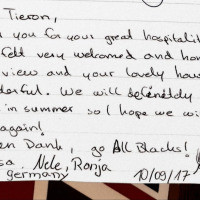 Tieron,
you for your great hospitalit
felt very welcomed and ho
view and your lovely hous
derful. We will definiddy
in summer so I hope we wi
again!
en Dank, go All Blacks!
sa. Nele, Ronja
germany 10/09/17